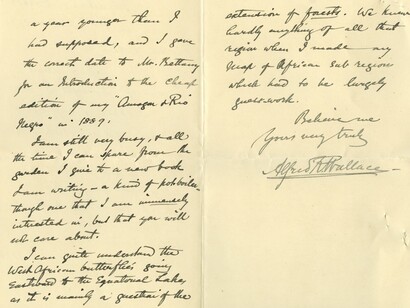 a year younger than I
had supposed, and I gave
the correct date to Mr. Bettany
for an Introduction to the cheap
edition of my "Amazon & Rio
Negro" in 1889.
I am still very busy, & all
the time I can spare from the
garden I give to a new book
I am writing – a kind of potboiler
though one that I am immensely
interested in, but that you will
not care about.
I can quite understand the
West African butterflies going
Eastward to the Equatorial Lakes
as it is mainly a question of the
extension of forests. We knew
hardly anything of all that
region when I made my
Map of African Sub region
which had to be largely
guess-work.
Believe me
Yours very truly
Alfred R Wallace